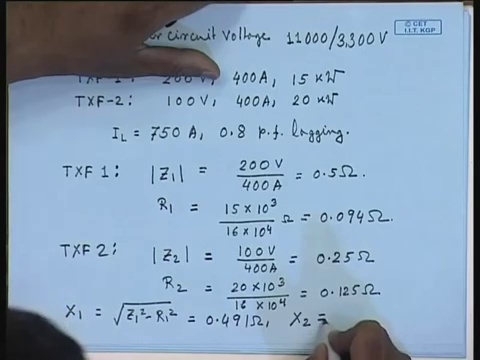 circuit Voltage 11000/3,300V
© CET
I.I.T. KGP
TXF-1: 200V, 400A, 15 kW
TXF-2: 100V, 400A, 20 kW
I_L = 750 A, 0.8 p.f. lagging.
TXF 1: |Z₁| = 200V/400A = 0.5Ω.
R₁ = 15×10³/16×10⁴ Ω = 0.094Ω.
TXF 2: |Z₂| = 100V/400A = 0.25Ω
R₂ = 20×10³/16×10⁴ = 0.125Ω
X₁ = √(Z₁²-R₁²) = 0.491Ω, X₂ =